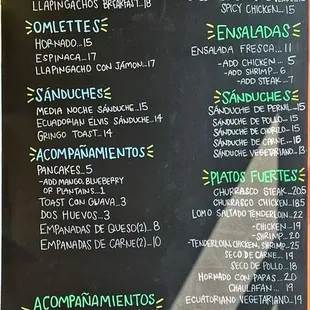 LLAPINGACHOS BREAKFAST..18
OMLETTES
HORNADO...15
ESPINACA...17
LLAPINGACHO CON JAMON..17
SÁNDUCHES
MEDIA NOCHE SÁNDUCHE..15
ECUADORIAN ELVIS SÁNDUCHE..14
GRINGO TOAST..14
ACOMPAÑAMIENTOS
PANCAKES..5
-ADD MANGO, BLUEBERRY
OR PLANTAINS..1
TOAST CON GUAVA..3
DOS HUEVOS...3
EMPANADAS DE QUESO(2)..8
EMPANADAS DE CARNE(2)..10
ACOMPAÑAMIENTOS
SPICY CHICKEN...15
ENSALADAS
ENSALADA FRESCA...11
-ADD CHICKEN..5
-ADD SHRIMP...6
-ADD STEAK...7
SÁNDUCHES
SÁNDUCHE DE PERNIL..15
SÁNDUCHE DE POLLO..15
SÁNDUCHE DE CHORIZO..15
SÁNDUCHE DE CARNE..16
SÁNDUCHE VEGETARIANO..13
PLATOS FUERTES
CHURRASCO STEAK...20.5
CHURRASCO CHICKEN..18.5
LOMO SALTADO TENDERLOIN..22
-CHICKEN...19
-SHRIMP...20
-TENDERLOIN, CHICKEN, SHRIMP...25
SECO DE CARNE...19
SECO DE POLLO..18
HORNADO CON PAPAS..20
CHAULAFAN...19
ECUATORIANO VEGETARIANO..19